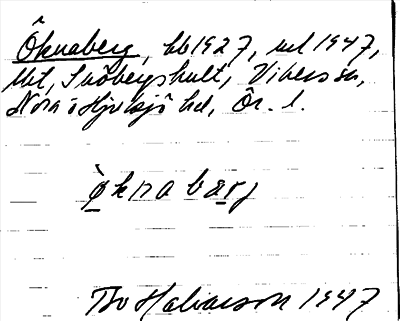 Öknaberg, bb 1927, ml 1947,
tht, Snöbergshult, Vikers sn,
Nora o Hjulsjö hd, Ör. l.
ö̀knabärj
Bo Halvarson 1947